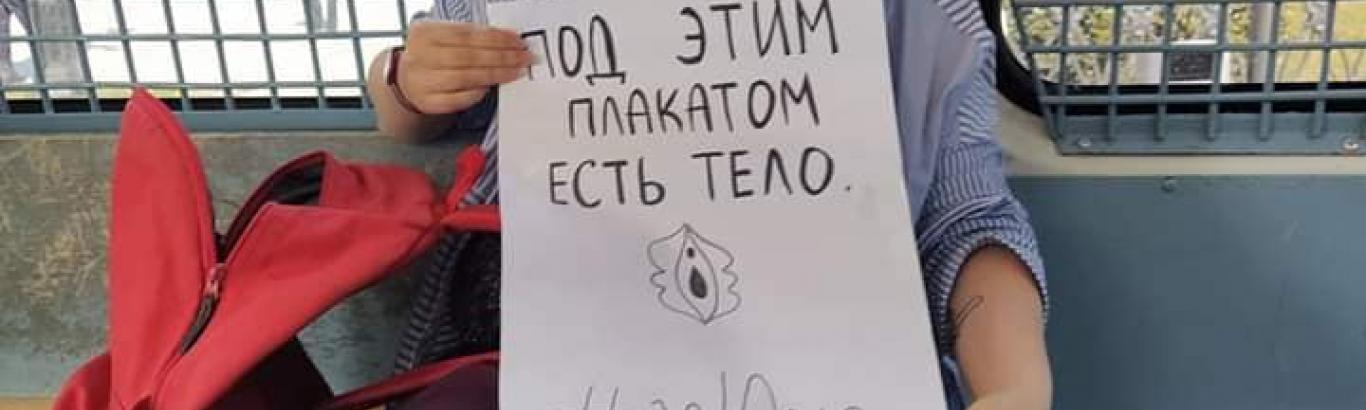 ПОД ЭТИМ
ПЛАКАТОМ
ЕСТЬ ТЕЛО.